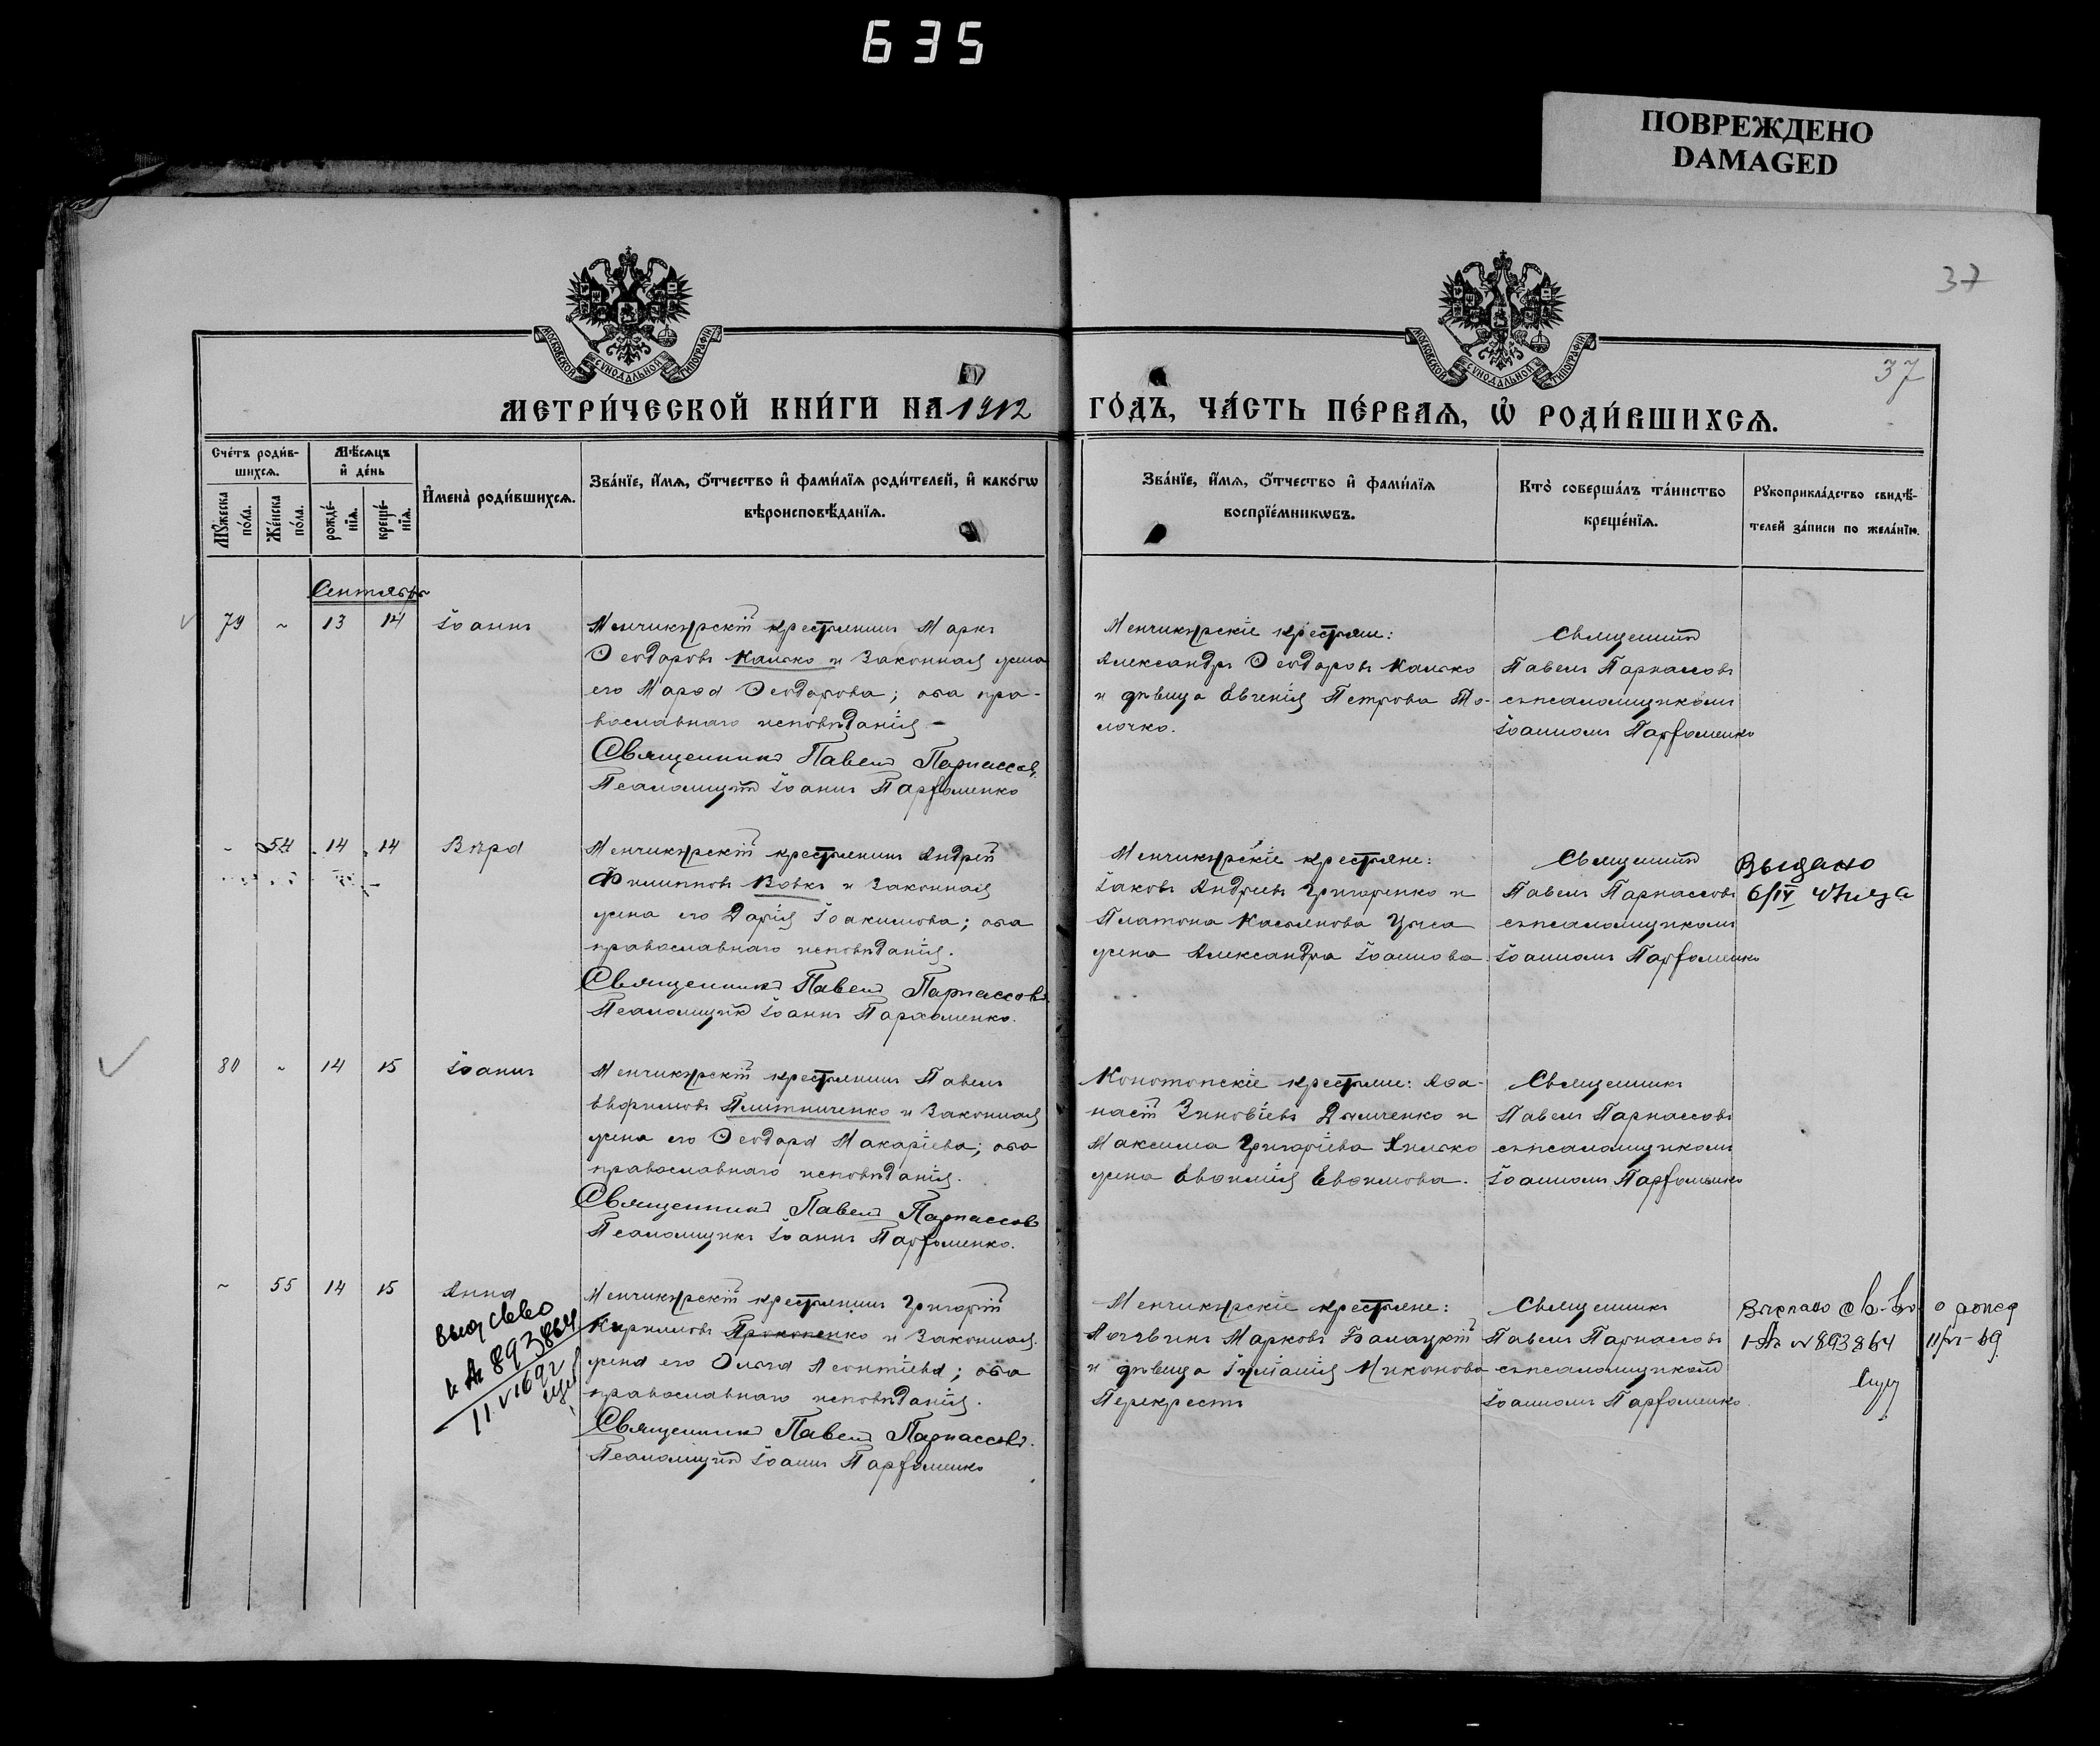 635
ПОВРЕЖДЕНО
DAMAGED
37
37
МОСКОВСКОЙ СУНОДАЛЬНОЙ ТИПОГРАФІИ
МОСКОВСКОЙ СУНОДАЛЬНОЙ ТИПОГРАФІИ
МЕТРИ́ЧЕСКОЙ КНИ́ГИ НА 1912
ГО́ДЪ, ЧА́СТЬ ПЕ́РВАЯ, Ѡ҆ РОДИ́ВШИХСЯ.
Сче́тъ роди́в-
шихся.
Мѣ́сяцъ
и҆ де́нь
Мꙋ́жеска
по́ла.
Же́нска
по́ла.
рожде́-
нїя.
креще́-
нїя.
И҆мена̀ роди́вшихся.
Зва́нїе, и҆́мя, ѻ҆́тчество и҆ фами́лїя роди́телей, и҆ како́гѡ
вѣроисповѣ́данїя.
Зва́нїе, и҆́мя, ѻ҆́тчество и҆ фами́лїя
воспрїе́мникѡвъ.
Кто̀ соверша́лъ та́инство
креще́нїя.
Рꙋкоприкла́дство свидѣ́-
телей за́писи по жела́нїю.
Сентябрь
79 ~ 13 14 Іоаннъ
Менчикурскій крестьянинъ Маркъ
Ѳеодоровъ Калько и законная жена
его Марѳа Ѳеодорова; оба пра-
вославнаго исповѣданія –
Священникъ Павелъ Парнассовъ
Псаломщикъ Іоаннъ Парѳоменко
Менчикурскіе крестьяне:
Александръ Ѳеодоровъ Калько
и дѣвица Евгенія Петрова То-
лочко.
Священникъ
Павелъ Парнассовъ
съ псаломщикомъ
Іоанномъ Парѳоменко
- 54 14 14 Вѣра
Менчикурскій крестьянинъ Андрей
Филипповъ Вовкъ и законная
жена его Дарія Іоакимова; оба
православнаго исповѣданія.
Священникъ Павелъ Парнассовъ
Псаломщикъ Іоаннъ Пархоменко.
Менчикурскіе крестьяне:
Іаковъ Андреевъ Григоренко и
Платона Касьянова Цыса
жена Александра Іоаннова
Священникъ
Павелъ Парнассовъ
съ псаломщикомъ
Іоанномъ Парѳоменко
Выдано
6/IV
80 ~ 14 15 Іоаннъ
Менчикурскій крестьянинъ Павелъ
Евфимовъ Плитниченко и законная
жена его Ѳеодора Макаріева; оба
православнаго исповѣданія.
Священникъ Павелъ Парнассовъ
Псаломщикъ Іоаннъ Парѳоменко.
Конотопскіе крестьяне: Аѳа-
насій Зиновіевъ Дымченко и
Максима Григоріева Хилько
жена Евѳимія Евѳимова.
Священникъ
Павелъ Парнассовъ
съ псаломщикомъ
Іоанномъ Парѳоменко
~ 55 14 15 Анна
Менчикурскій крестьянинъ Григорій
Кирилловъ Прокопенко и законная
жена его Ольга Леонтіева; оба
православнаго исповѣданія.
Священникъ Павелъ Парнассовъ.
Псаломщикъ Іоаннъ Парѳоменко
893864
Менчикурскіе крестьяне:
Логгвинъ Марковъ Балацкій
и дѣвица Іуліанія Миконова
Перекрестъ
Священникъ
Павелъ Парнассовъ
съ псаломщикомъ
Іоанномъ Парѳоменко.
св-во о
№ 893864